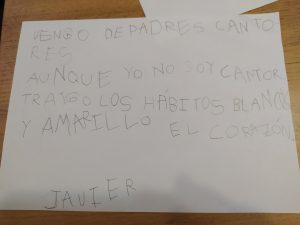 VENGO DE PADRES CANTO
RES
AUNQUE YO NO SOY CANTOR
TRAYGO LOS HÁBITOS BLANCOS
Y AMARILLO EL CORAZÓN
JAVIER